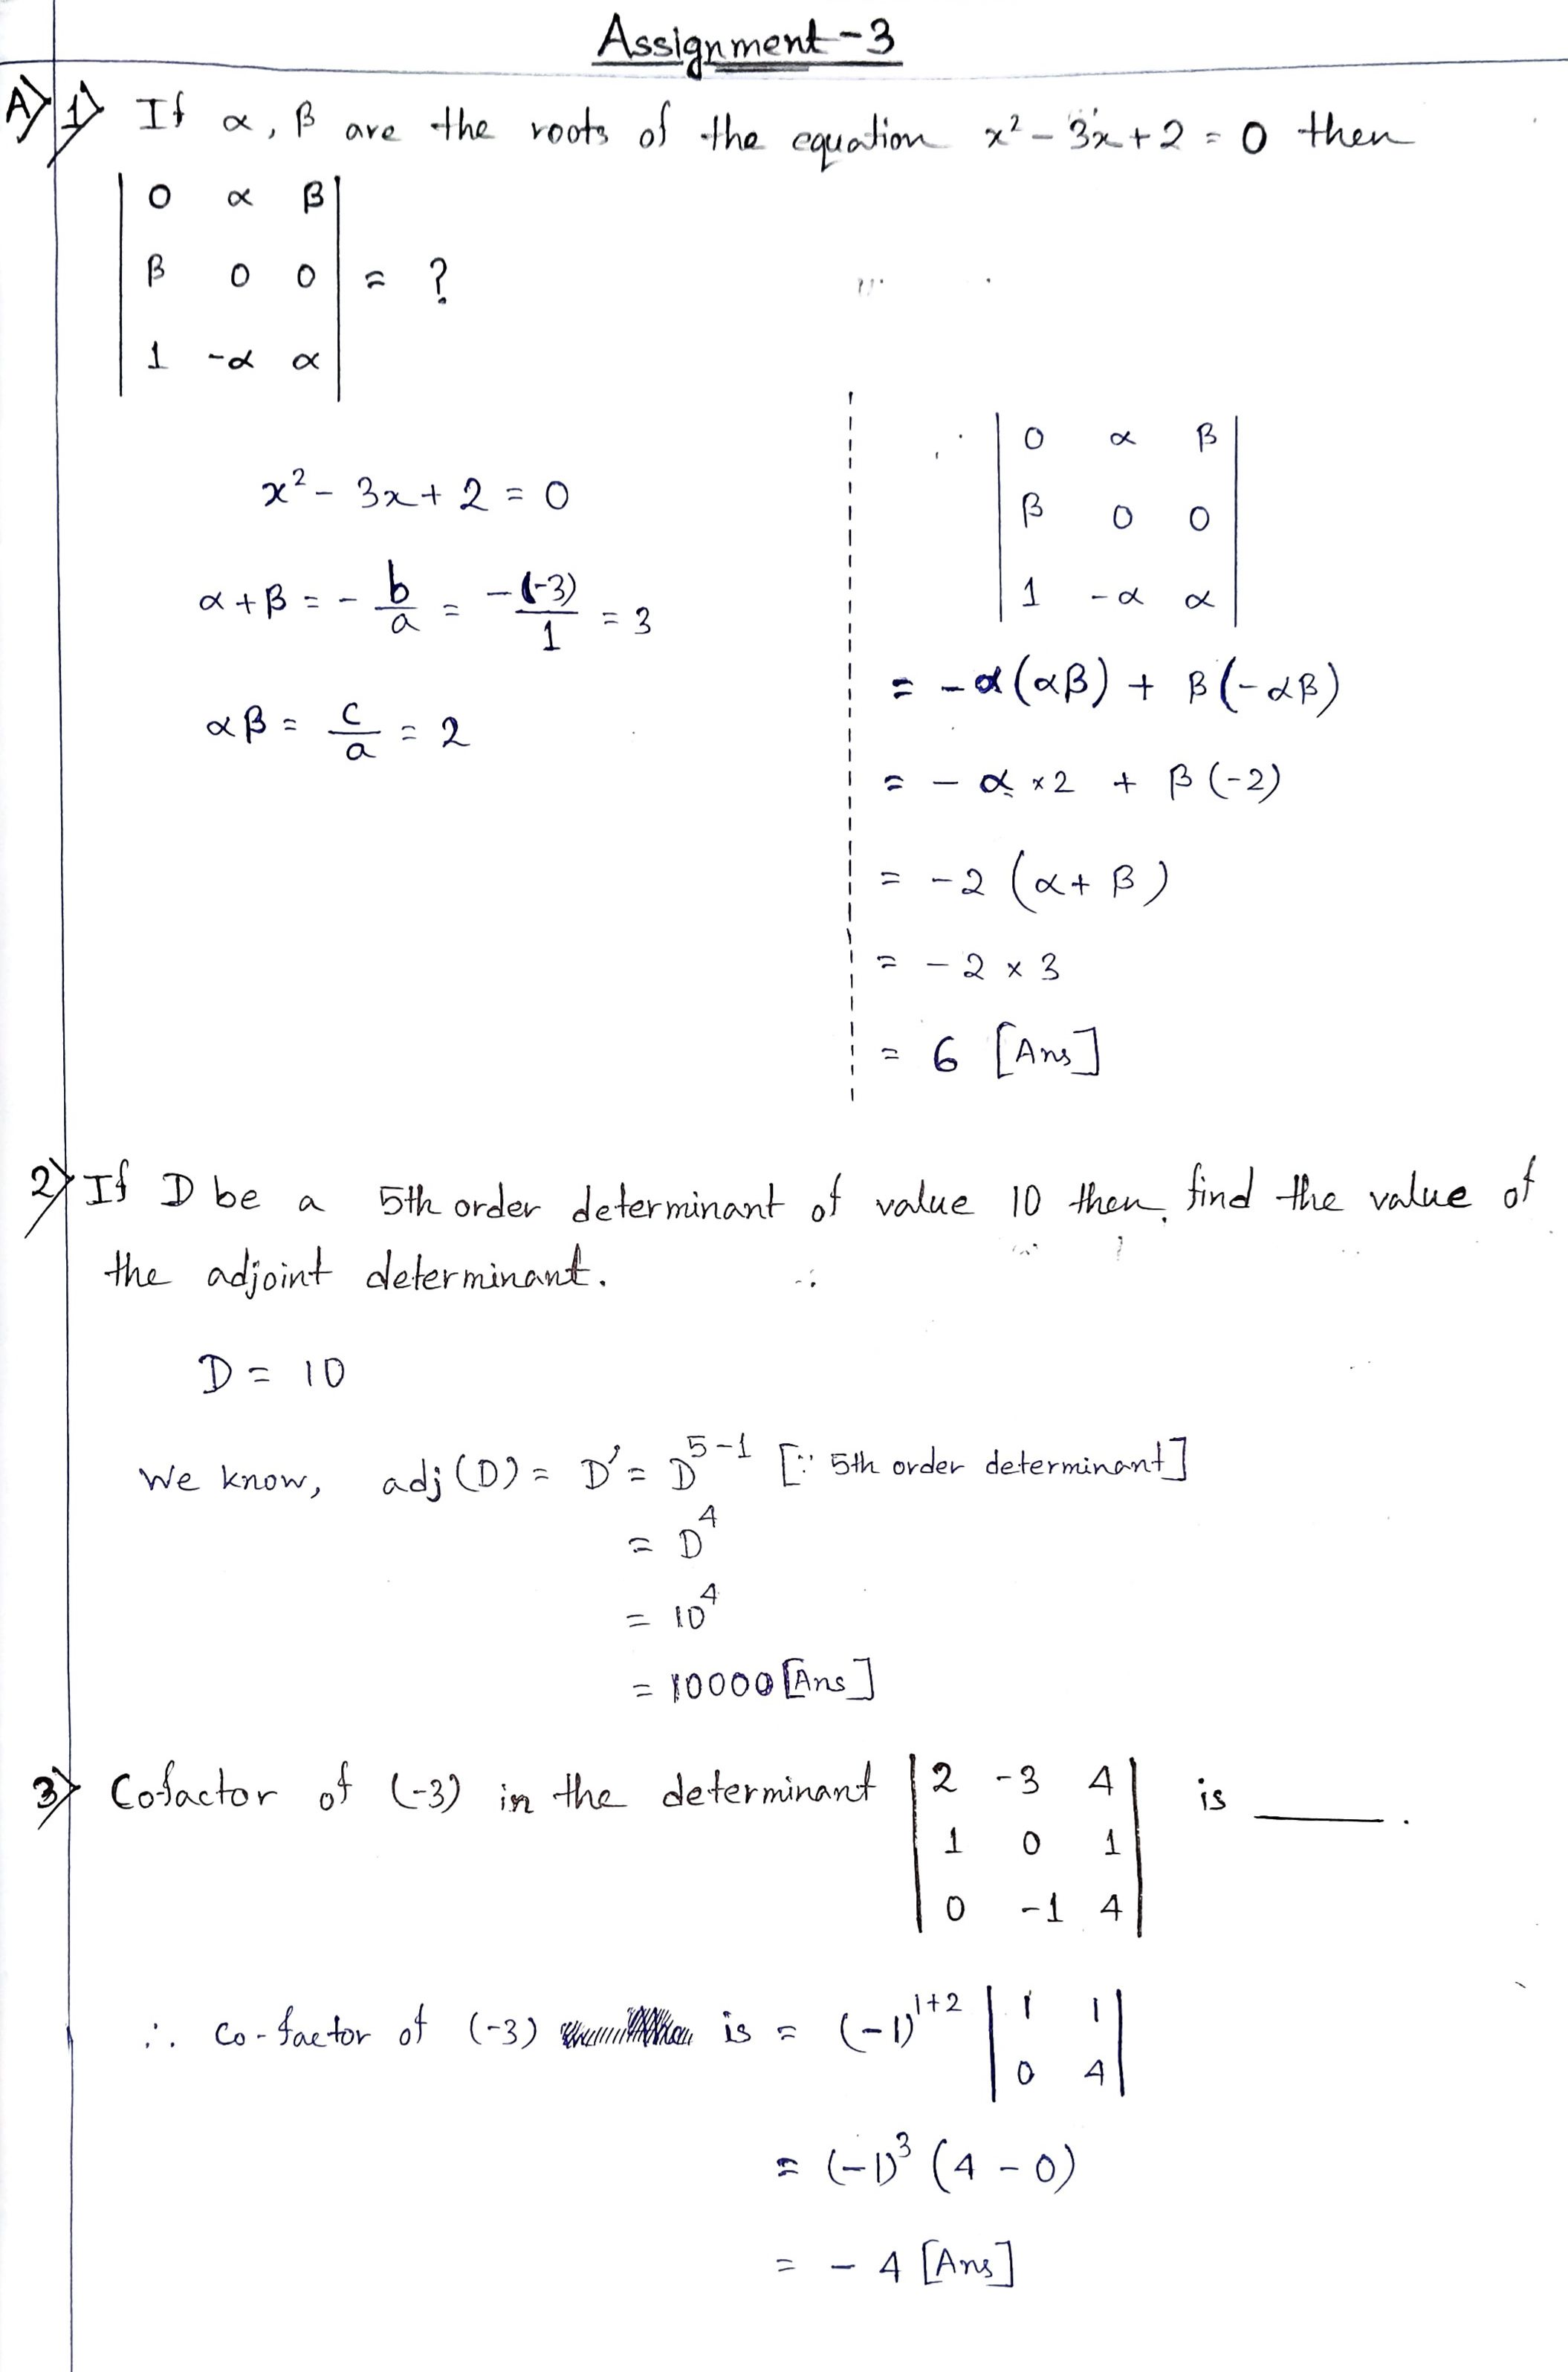 Assignment-3
A) 1) If α, β are the roots of the equation x² - 3x + 2 = 0 then
| 0 α β |
| β 0 0 | = ?
| 1 -α α |
x² - 3x + 2 = 0
α + β = - b/a = -(-3)/1 = 3
αβ = c/a = 2
| 0 α β |
| β 0 0 |
| 1 -α α |
= -α(αβ) + β(-αβ)
= - α × 2 + β(-2)
= -2 (α + β)
= - 2 × 3
= 6 [Ans]
2) If D be a 5th order determinant of value 10 then find the value of
the adjoint determinant.
D = 10
We know, adj(D) = D' = D⁵⁻¹ [∵ 5th order determinant]
= D⁴
= 10⁴
= 10000 [Ans]
3) Cofactor of (-3) in the determinant | 2 -3 4 | is ____.
| 1 0 1 |
| 0 -1 4 |
∴ co-factor of (-3) is = (-1)¹⁺² | 1 1 |
| 0 4 |
= (-1)³ (4 - 0)
= - 4 [Ans]